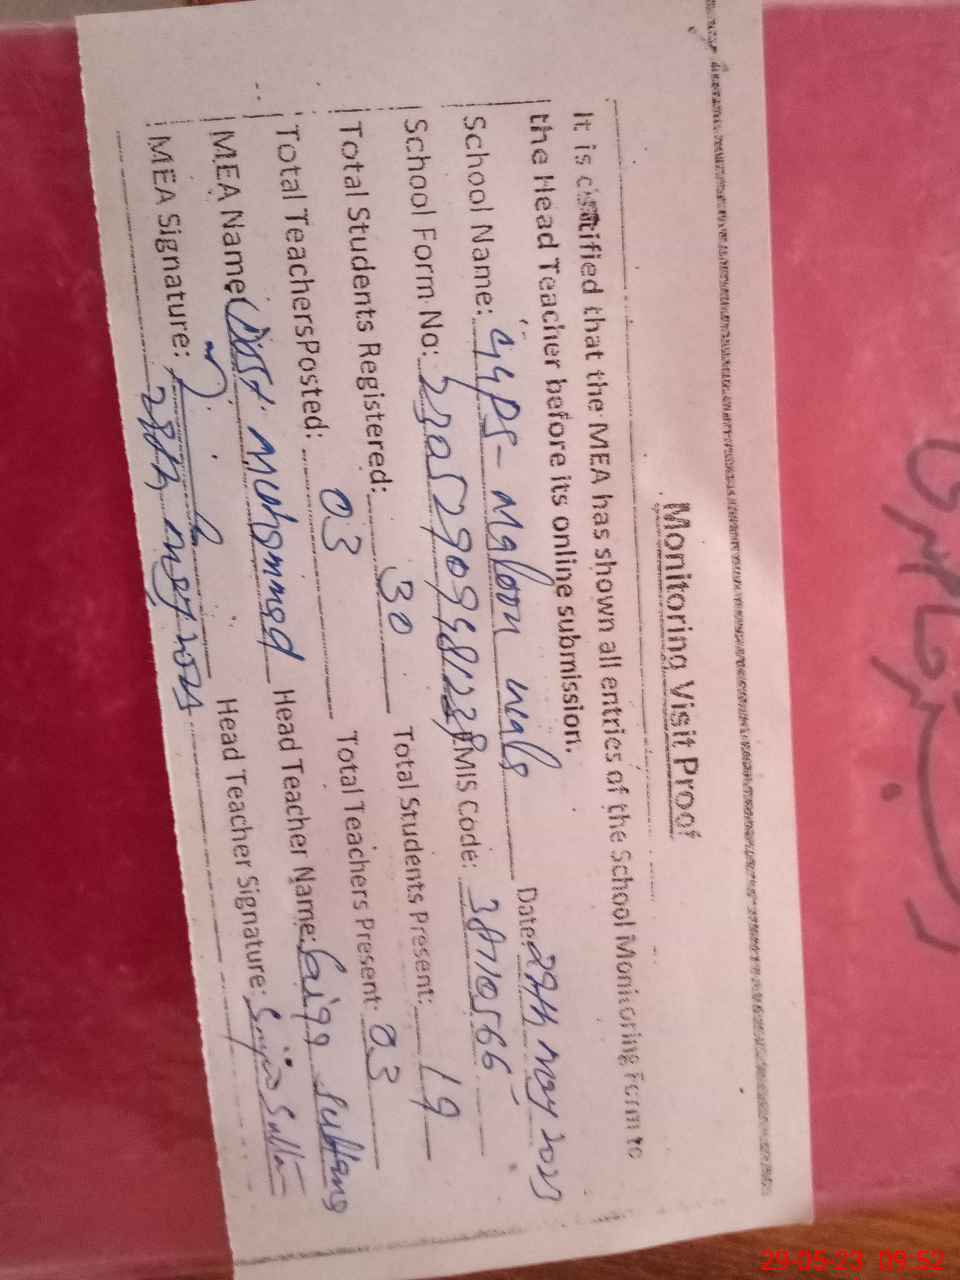 Monitoring Visit Proof
It is certified that the MEA has shown all entries of the School Monitoring Form to
the Head Teacher before its online submission.
School Name: GGPS- Maloon Wals Date: 29th May 2023
School Form No: EMIS Code: 38710566
Total Students Registered: 30 Total Students Present: 19
Total TeachersPosted: 03 Total Teachers Present: 03
MEA Name: Dost Muhammad Head Teacher Name: Saiqa Sultana
MEA Signature: Head Teacher Signature: Saiqa Sultan
29-05-23 09:52